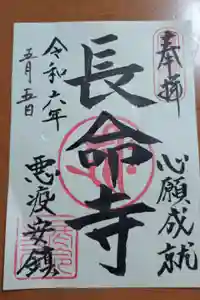 奉拝
心願成就
長命寺
令和六年
五月五日
悪疫安鎮